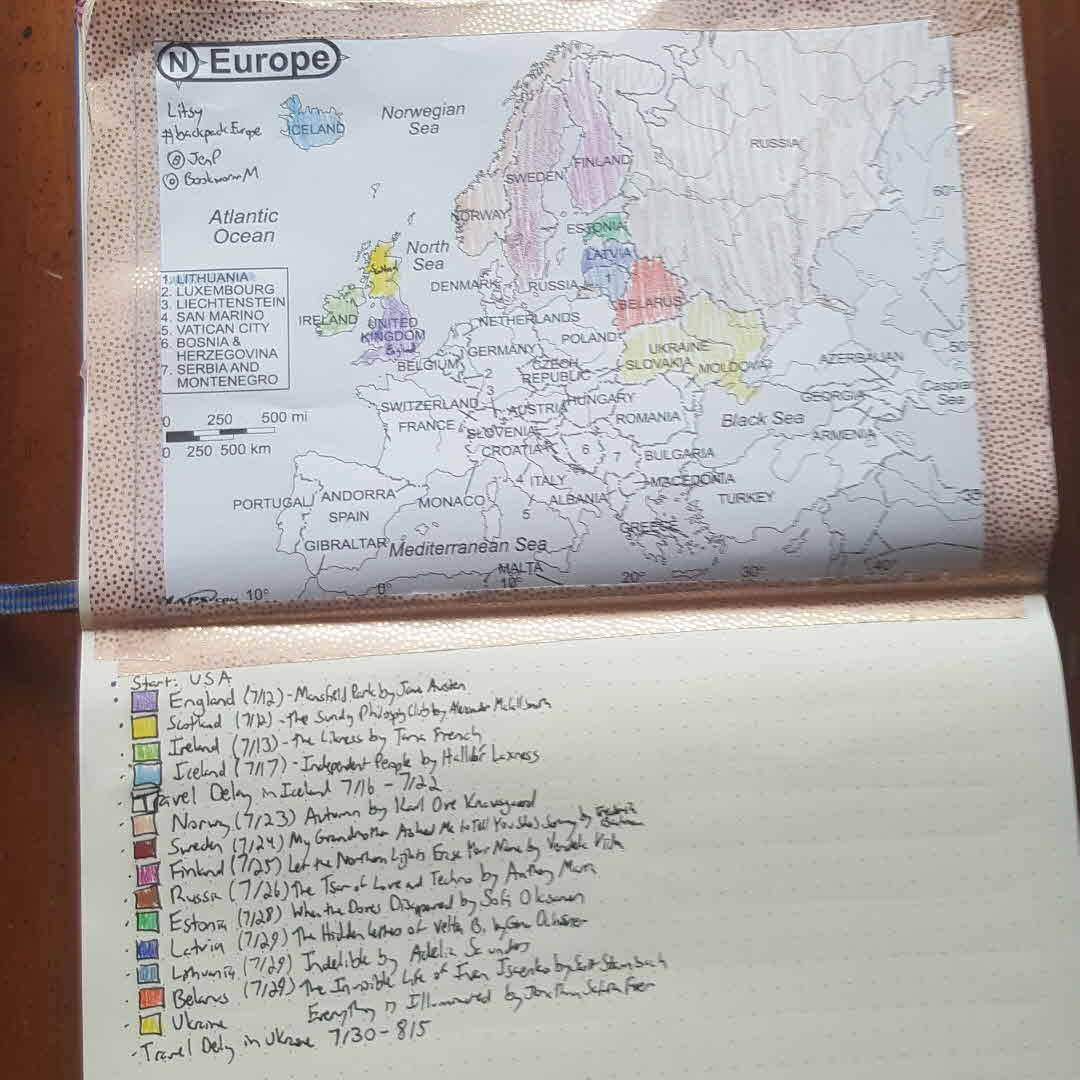 N Europe
Litsy
#backpackEurope
@ JenP
@ BookwormM
Norwegian
Sea
ICELAND
RUSSIA
FINLAND
SWEDEN
60°
Atlantic
Ocean
NORWAY
ESTONIA
North
Sea
LATVIA
1
DENMARK
RUSSIA
BELARUS
Scotland
1. LITHUANIA
2. LUXEMBOURG
3. LIECHTENSTEIN
4. SAN MARINO
5. VATICAN CITY
6. BOSNIA &
HERZEGOVINA
7. SERBIA AND
MONTENEGRO
IRELAND
UNITED
KINGDOM
England
NETHERLANDS
POLAND
GERMANY
UKRAINE
50°
BELGIUM
2
CZECH
REPUBLIC
SLOVAKIA
MOLDOVA
AZERBAIJAN
Caspian
Sea
SWITZERLAND
3
AUSTRIA
HUNGARY
GEORGIA
0 250 500 mi
0 250 500 km
FRANCE
SLOVENIA
ROMANIA
Black Sea
ARMENIA
CROATIA
6
7
BULGARIA
4
ITALY
MACEDONIA
PORTUGAL
ANDORRA
MONACO
ALBANIA
TURKEY
35
SPAIN
5
GREECE
GIBRALTAR
Mediterranean Sea
MALTA
10°
0°
10°
20°
30°
40°
• Start: USA
• England (7/12) - Mansfield Park by Jane Austen
• Scotland (7/12) - The Sunday Philosophy Club by Alexander McCall Smith
• Ireland (7/13) - The Likeness by Tana French
• Iceland (7/17) - Independent People by Halldór Laxness
• Travel Delay in Iceland 7/16 - 7/22
• Norway (7/23) Autumn by Karl Ove Knausgaard
• Sweden (7/24) My Grandmother Asked Me to Tell You She's Sorry by Fredrik Backman
• Finland (7/25) Let the Northern Lights Erase Your Name by Vendela Vida
• Russia (7/26) The Tsar of Love and Techno by Anthony Marra
• Estonia (7/28) When the Doves Disappeared by Sofi Oksanen
• Latvia (7/29) The Hidden Letters of Velta B. by Gina Ochsner
• Lithuania (7/29) Indelible by Adelia Saunders
• Belarus (7/29) The Invisible Life of Ivan Isaenko by Scott Stambach
• Ukraine Everything is Illuminated by Jonathan Safran Foer
• Travel Delay in Ukraine 7/30 - 8/5